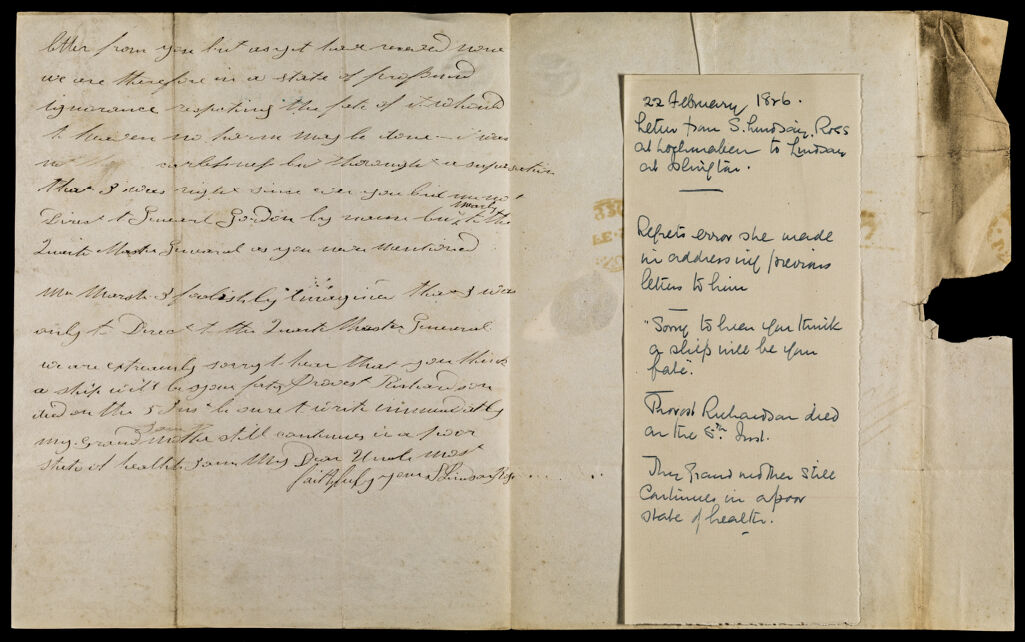 letter from you but as yet have received none
we are therefore in a state of profound
ignorance respecting the fate of it I should
to heaven no harm may be done — it was
not carelessness but thorough a supposition
that I was right since ever you bid me not
Direct to General Gordon by name but merely to the
Quarter Master General as you never mentioned
Mr Marsh I foolishly imagined that I was
only to Direct to the Quarter Master General
we are extremely sorry to hear that you think
a ship will be your fate, Provost Richardson
died on the 5 Inst be sure to write immediately
my Grand Mother still continues in a poor
state of health I am My Dear Uncle most
faithfully yours S Lindsay Ross
22 February 1826.
Letter from S. Lindsay Ross
at Lochmaben to Lindsay
at Islington.
Regrets error she made
in addressing previous
letters to him
"Sorry to hear you think
a ship will be your
fate.
Provost Richardson died
on the 5th. Inst.
My Grandmother still
continues in a poor
state of health.